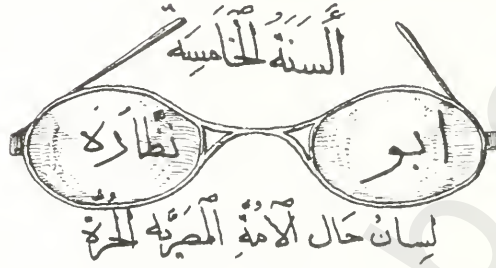 أَلسَنَةُ الْخَامِسَة
ابو نظارَه
لِسانُ حَال اْلاُمةِ الْمَصرِيَّه الْحُرَّة